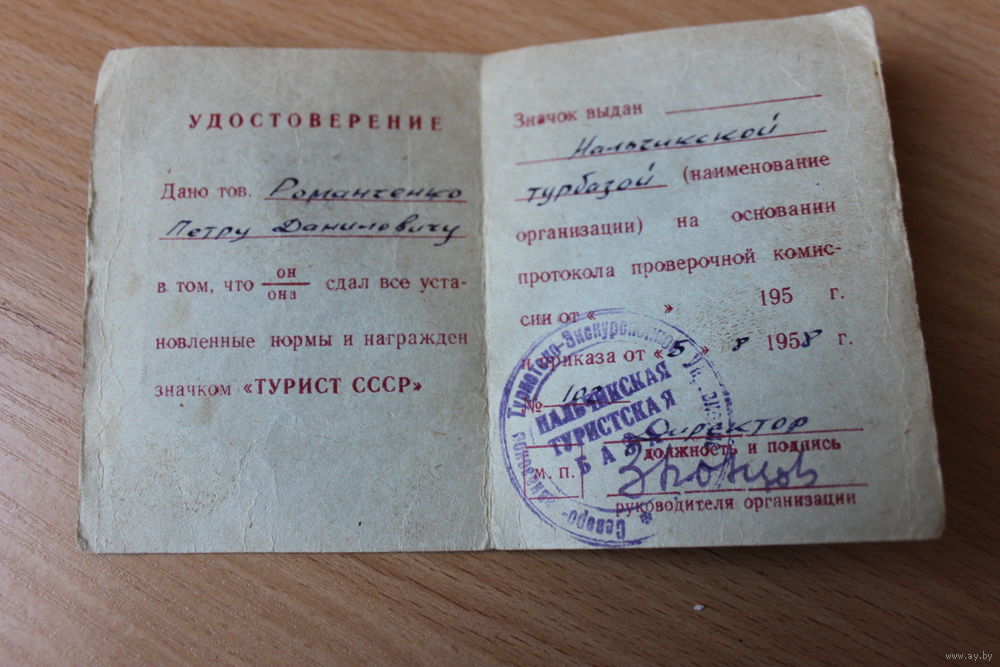 УДОСТОВЕРЕНИЕ
Дано тов. Романченко
Петру Даниловичу
в том, что он/она сдал все уста-
новленные нормы и награжден
значком «ТУРИСТ СССР»
Значок выдан
Нальчикской
турбазой (наименование
организации) на основании
протокола проверочной комис-
сии от « » 195 г.
и приказа от « » 8 1958 г.
№
Директор
м. п. должность и подпись
руководителя организации
НАЛЬЧИКСКАЯ
ТУРИСТСКАЯ
БАЗА
Туристско-Экскурсионное
www.ay.by